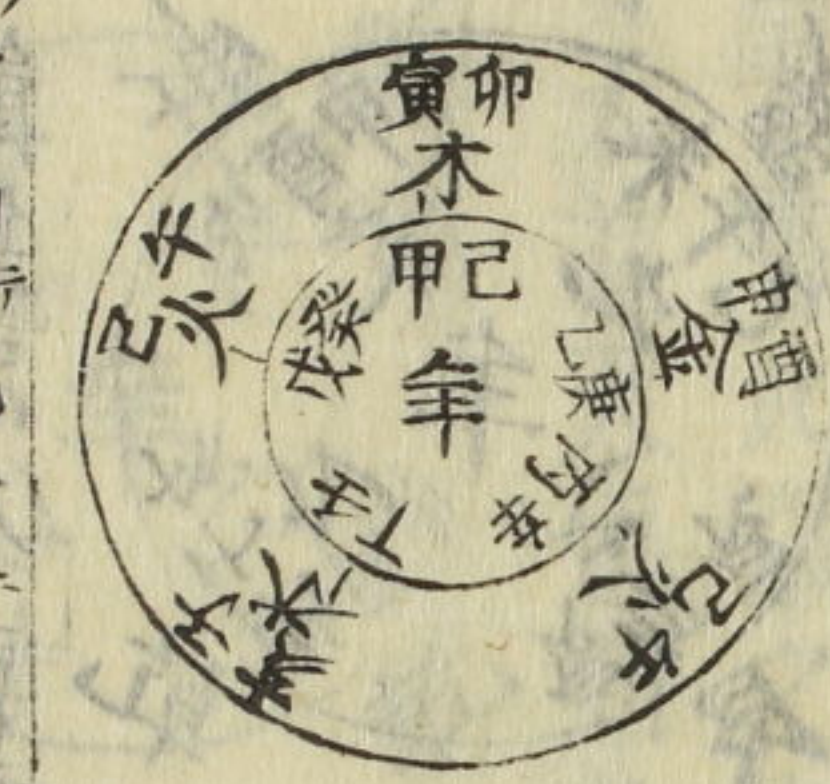 寅卯
木
申酉
金
巳午
火
亥子
水
巳午
火
甲己
乙庚
丙辛
丁壬
戊癸
年